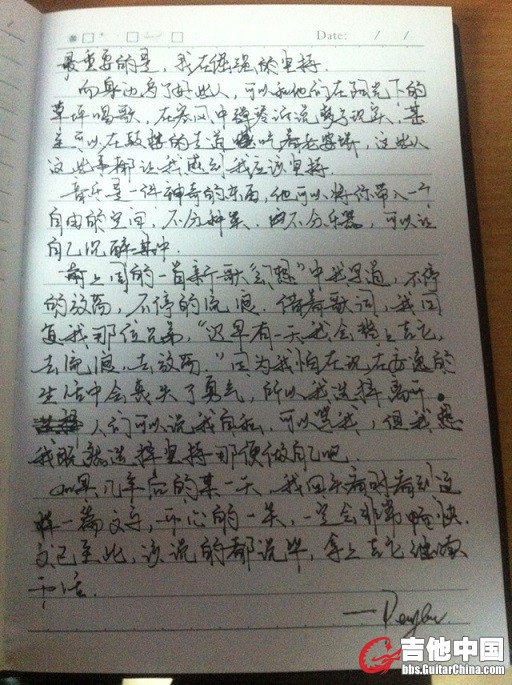 Date: / /
最重要的是，我在倔强的坚持.
而身边多了好些人，可以和他们在阳光下的
草坪唱歌，在寒风中弹琴诉说梦与现实，甚
至可以在敲楼的走道 吃着老婆饼，这些人
这些事都让我感到我应该坚持.
音乐是一件神奇的东西，他可以将你带入一个
自由的空间，不分种类. 不分乐器，可以让
自己沉醉其中.
上周的一首新歌 "幻想" 中我写道，不停
的放荡，不停的流浪. 借着歌词，我回
复我那位兄弟，"迟早有一天我会背上吉他，
去流浪，去放荡." 因为我怕在现在安逸的
生活中会丧失了勇气，所以我选择离开.
人们可以说我自私，可以骂我，但我想
我既然选择坚持那便做自己吧.
如果几年后的某一天，我回头看时看到这
样一篇文字，开心的一笑，一定会非常畅快.
文已至此，该说的都说毕，拿上吉他继续
干活.
吉他中国
bbs.GuitarChina.com